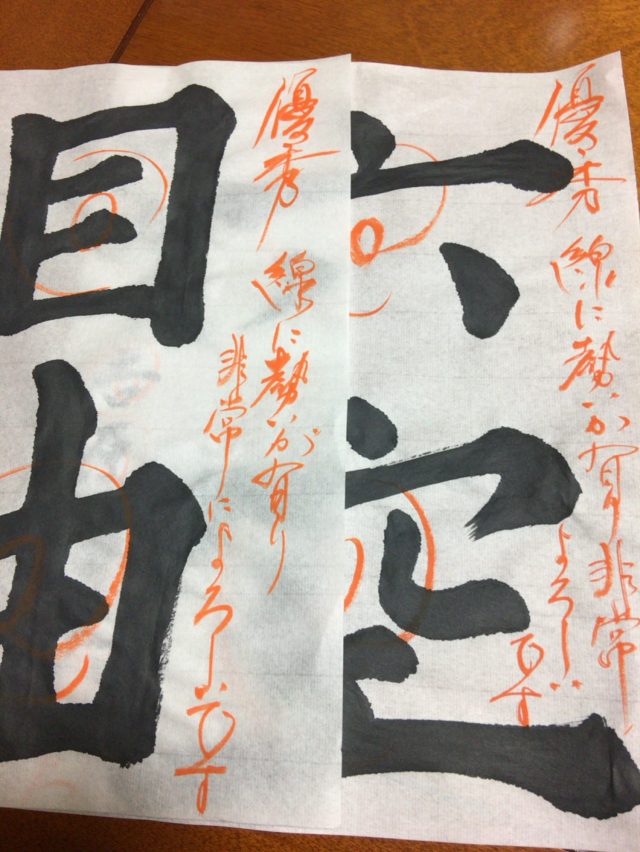 優秀 線に勢いが有り非常に
よろしいです
六空
優秀 線に勢いが有り
非常によろしいです
自由